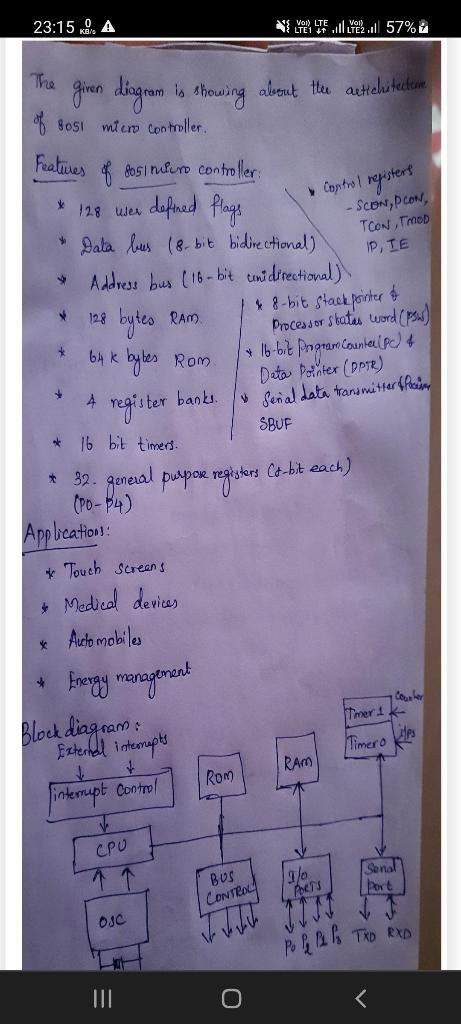 23:15 0 KB/s
Vo)) LTE LTE1 Vo)) LTE2 57%
The given diagram is showing about the artichitecture
of 8051 micro controller.
Features of 8051 micro controller:
* 128 user defined flags
* Data bus (8-bit bidirectional)
* Address bus (16-bit unidirectional)
* 128 bytes RAM.
* 64 k bytes ROM.
* 4 register banks.
* 16 bit timers.
* 32- general purpose registers (8-bit each)
(P0-P4)
* Control registers
- SCON, PCON,
TCON, TMOD
IP, IE
* 8-bit stack pointer &
Processor status word (PSW)
* 16-bit Program Counter (PC) &
Data Pointer (DPTR)
* Serial data transmitter &
SBUF
Applications:
* Touch screens
* Medical devices
* Automobiles
* Energy management
Block diagram:
External interrupts
interrupt control
CPU
OSC
ROM
RAM
Timer 1
Timer 0
Counter
i/ps
BUS
CONTROL
I/O
PORTS
Serial
port
P0 P2 P1 P3
TXD RXD